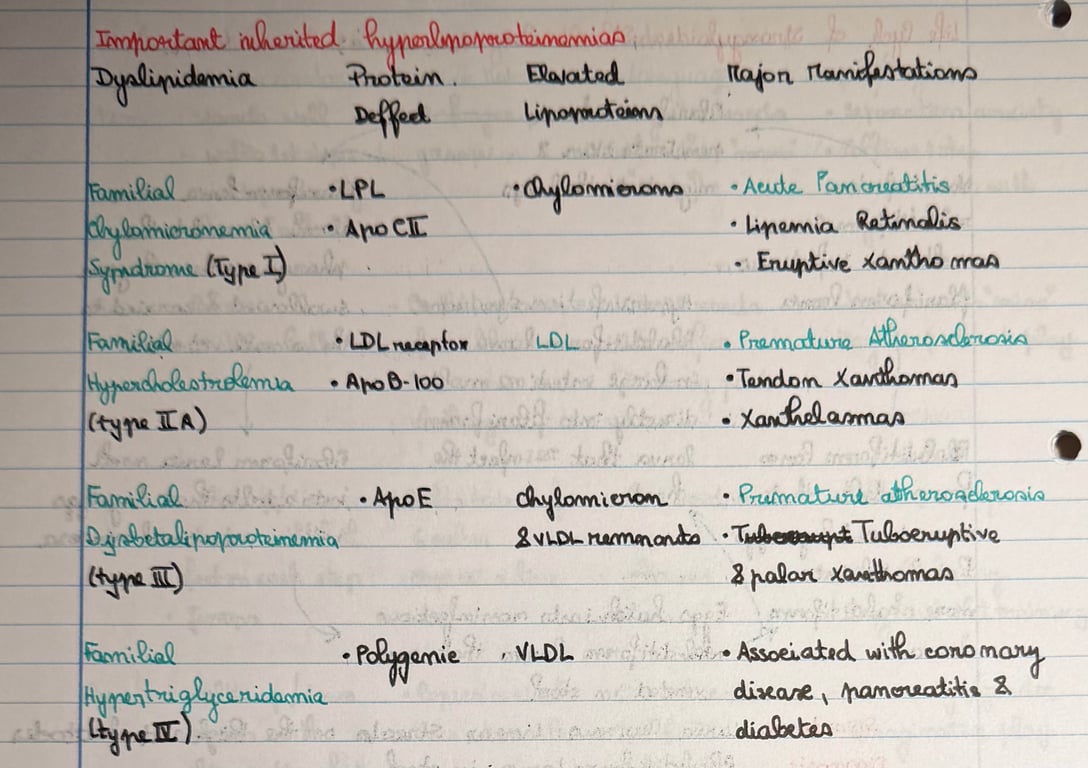 Important inherited hyperlipoproteinemias
Dyslipidemia Protein. Elevated Major Manifestations
Deffect Lipoproteins
Familial • LPL • Chylomicrons • Acute Pancreatitis
Chylomicronemia • Apo CII • Lipemia Retinalis
Sypndrome (Type I) • Eruptive Xanthomas
Familial • LDL receptor LDL • Premature Atherosclerosis
Hypercholestrolemia • Apo B-100 • Tendon Xanthomas
(type II A) • Xanthelasmas
Familial • Apo E chylomicron • Premature atherosclerosis
Dysbetalipoproteinemia & VLDL remmnants • Tuboeruptive
(type III) & palar xanthomas
Familial • Polygenic VLDL • Associated with coronary
Hypertriglyceridemia disease, pancreatitis &
(type IV) diabetes